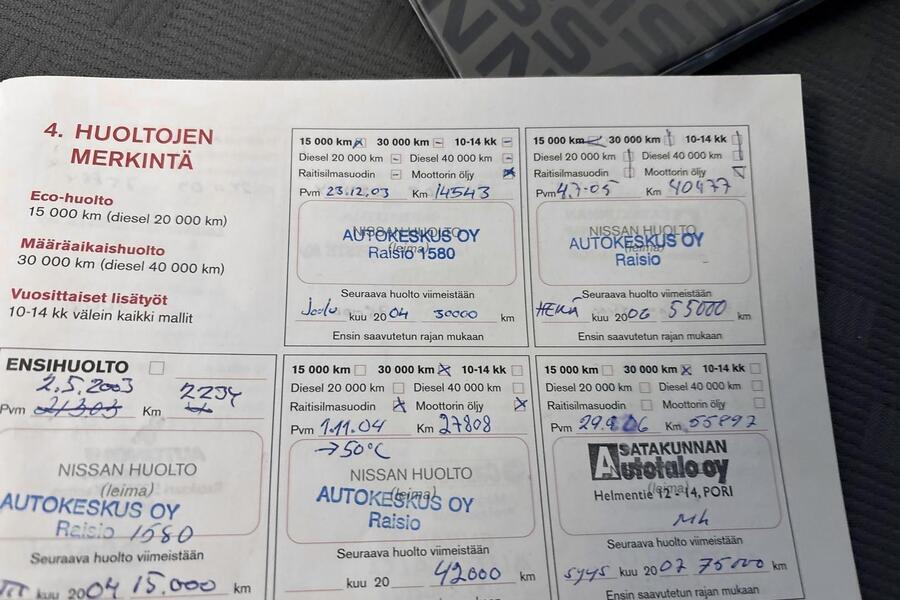 4. HUOLTOJEN
MERKINTÄ
Eco-huolto
15 000 km (diesel 20 000 km)
Määräaikaishuolto
30 000 km (diesel 40 000 km)
Vuosittaiset lisätyöt
10-14 kk välein kaikki mallit
15 000 km 30 000 km 10-14 kk
Diesel 20 000 km Diesel 40 000 km
Raitisilmasuodin Moottorin öljy
Pvm 23.12.03 Km 14543
NISSAN HUOLTO
(leima)
AUTOKESKUS OY
Raisio 1580
Seuraava huolto viimeistään
Joulu kuu 2004 30000 km
Ensin saavutetun rajan mukaan
15 000 km 30 000 km 10-14 kk
Diesel 20 000 km Diesel 40 000 km
Raitisilmasuodin Moottorin öljy
Pvm 4.7.05 Km 40477
NISSAN HUOLTO
(leima)
AUTOKESKUS OY
Raisio
Seuraava huolto viimeistään
HEINÄ kuu 2006 55000 km
Ensin saavutetun rajan mukaan
ENSIHUOLTO
2.5.2003 2234
Pvm Km
NISSAN HUOLTO
(leima)
AUTOKESKUS OY
Raisio 1580
Seuraava huolto viimeistään
kuu 2004 15.000 km
15 000 km 30 000 km 10-14 kk
Diesel 20 000 km Diesel 40 000 km
Raitisilmasuodin Moottorin öljy
Pvm 1.11.04 Km 27808
→50°C
NISSAN HUOLTO
(leima)
AUTOKESKUS OY
Raisio
Seuraava huolto viimeistään
kuu 20 42000 km
15 000 km 30 000 km 10-14 kk
Diesel 20 000 km Diesel 40 000 km
Raitisilmasuodin Moottorin öljy
Pvm Km 55892
SATAKUNNAN
Autotalo oy
(leima)
Helmentie 12-14, PORI
Seuraava huolto viimeistään
syys kuu 2007 75000 km
Ensin saavutetun rajan mukaan